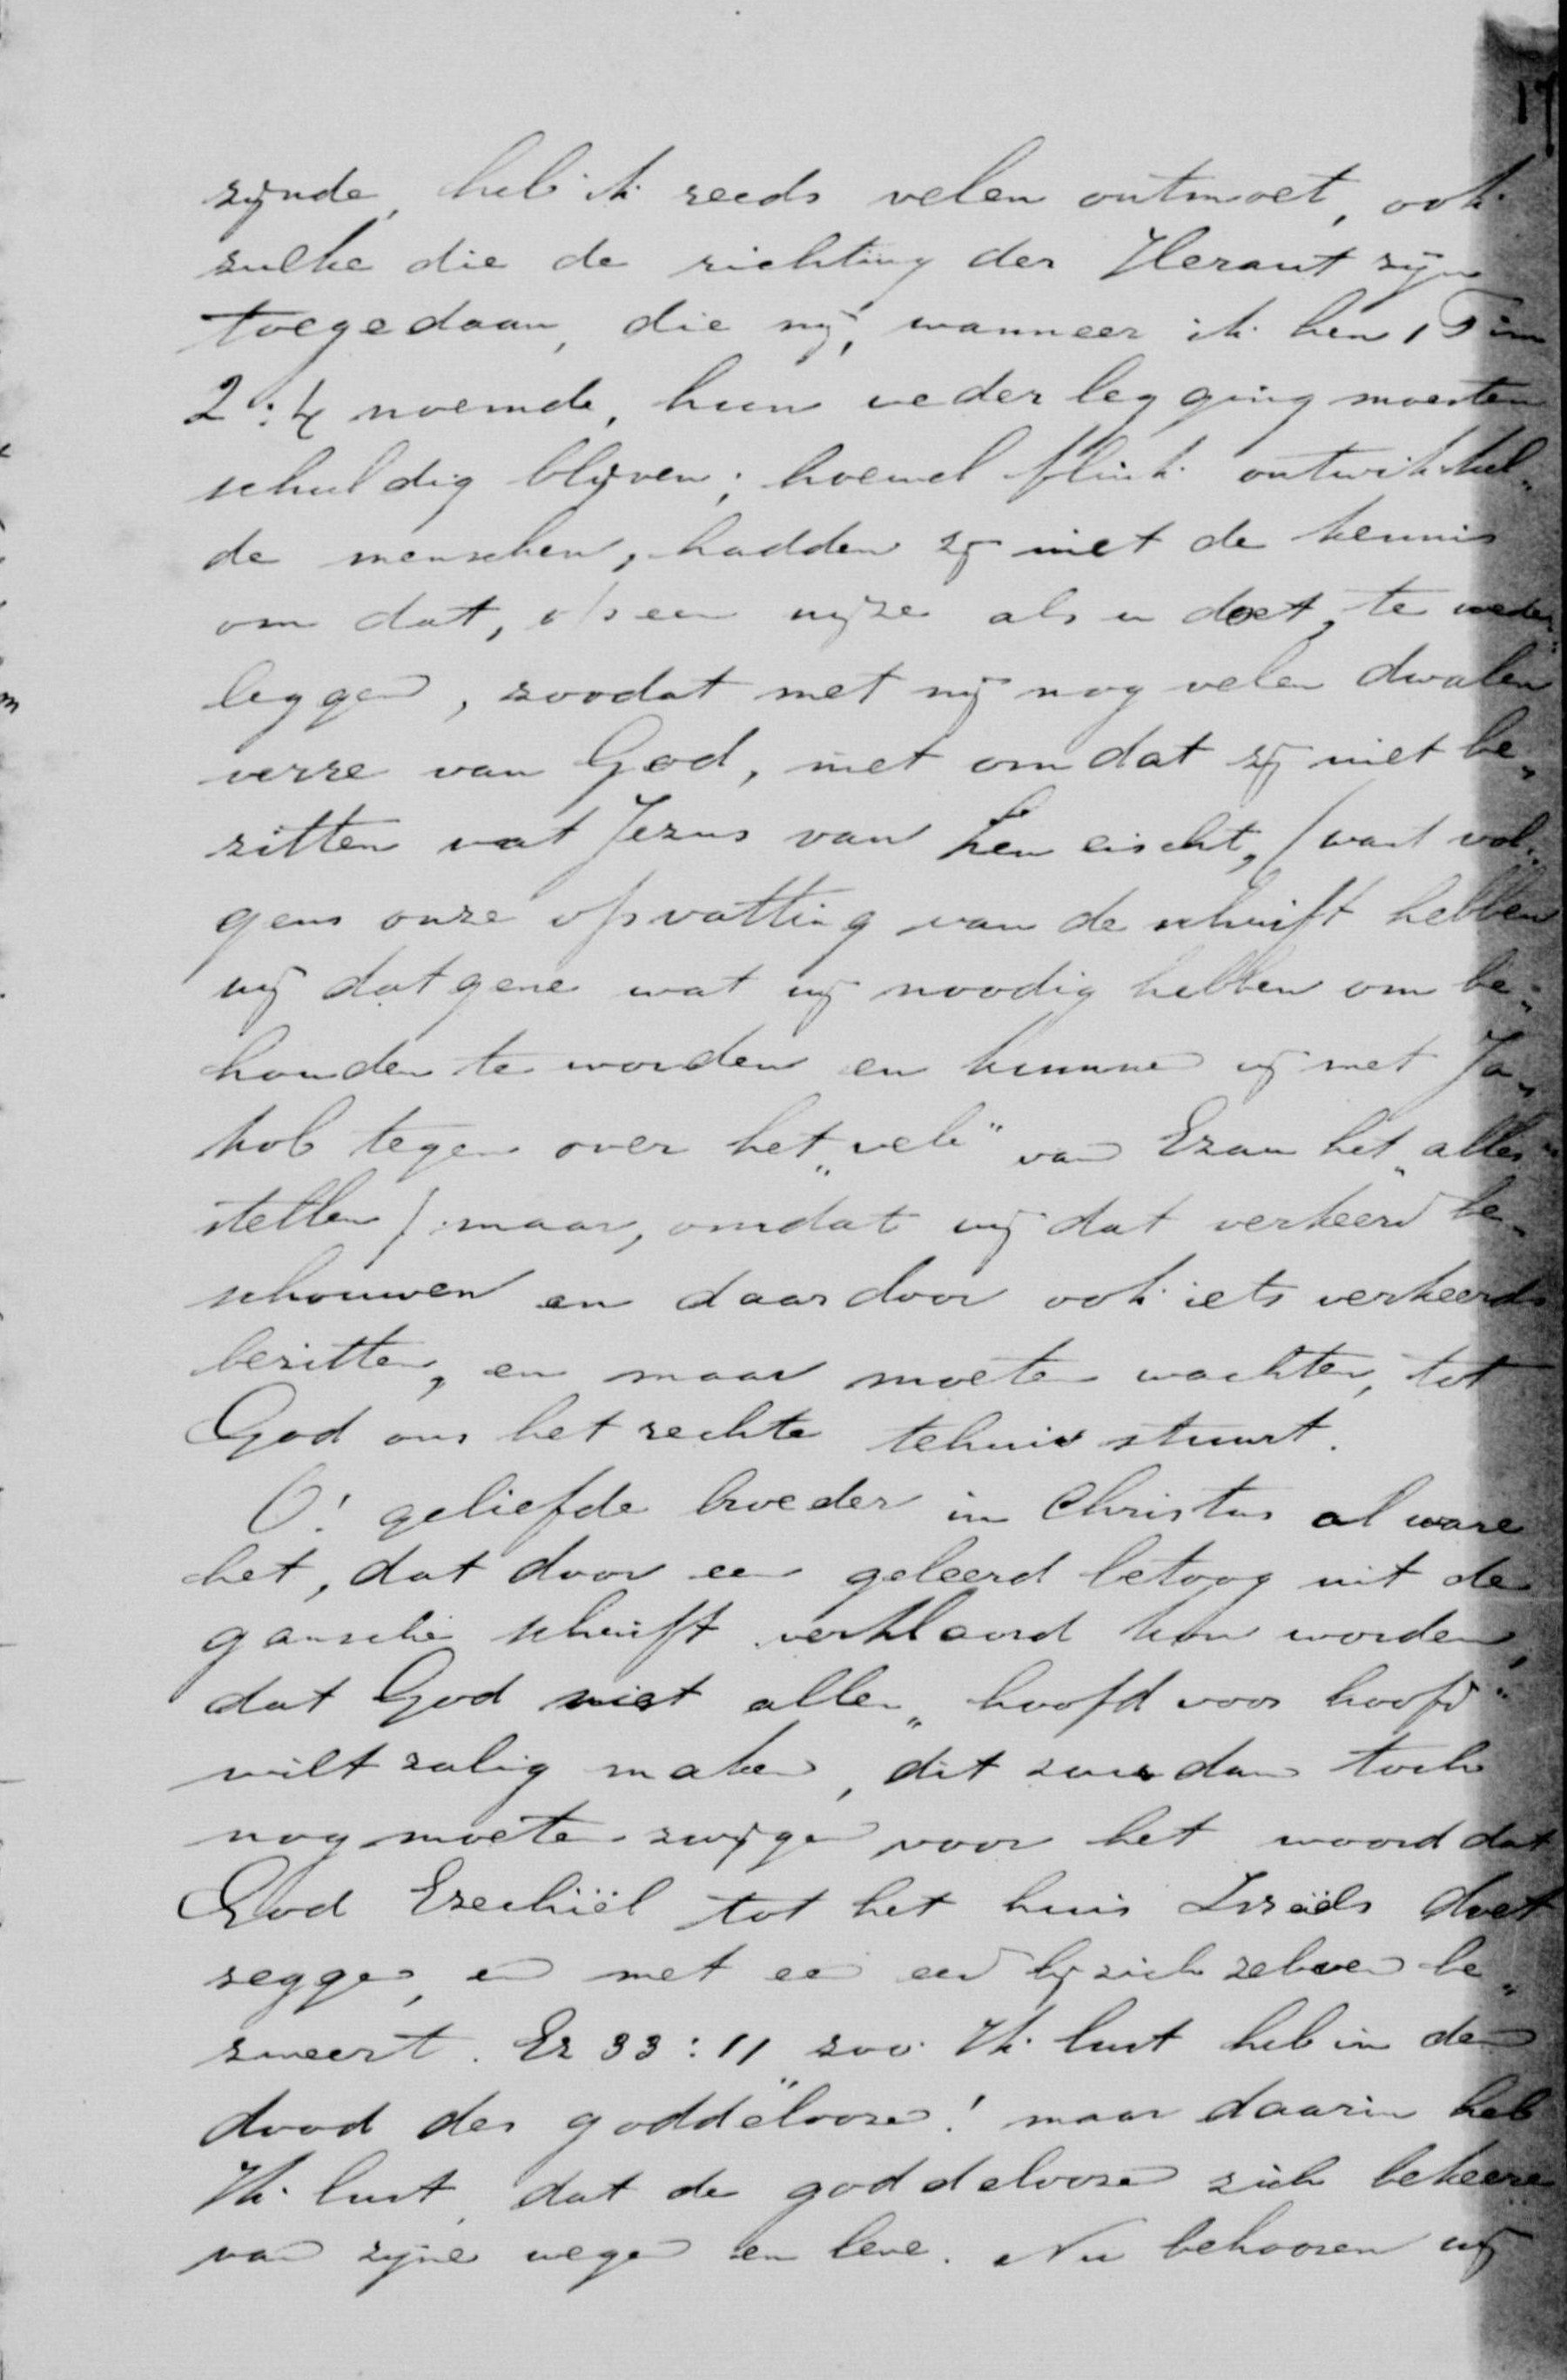 17
zijnde, heb ik reeds velen ontmoet, ook
zulke die de richting der Heraut zijn
toegedaan, die mij, wanneer ik hen 1 Tim
2:4 noemde, hun wederlegging moesten
schuldig blijven; hoewel flink ontwikkel„
de menschen, hadden zij niet de kennis
om dat, op een wijze als u doet, te weder„
leggen, zoodat met mij nog velen dwalen
verre van God, niet omdat zij niet be„
zitten wat Jezus van hen eischt, (want vol„
gens onze opvatting van de schrift hebben
wij datgene wat wij noodig hebben om be„
houden te worden en kunnen wij met Ja„
kob tegen over het „vele" van Ezau het „alles"
stellen) maar, omdat wij dat verkeerd be„
schouwen en daardoor ook iets verkeerds
bezitten, en maar moeten wachten, tot
God ons het rechte tehuis stuurt.
O! geliefde broeder in Christus al ware
het, dat door een geleerd betoog uit de
gansche schrift verklaard kon worden,
dat God niet allen „hoofd voor hoofd"
wilt zalig maken, dit zou dan toch
nog moeten zwijgen voor het woord dat
God Ezechiël tot het huis Israëls doet
zeggen, en met een eed bij zich zelven be„
zweert. Ez 33:11 zoo Ik lust heb in den
dood des goddeloozen! maar daarin heb
Ik lust, dat de goddelooze zich bekeere
van zijne wegen en leve. Nu behooren wij